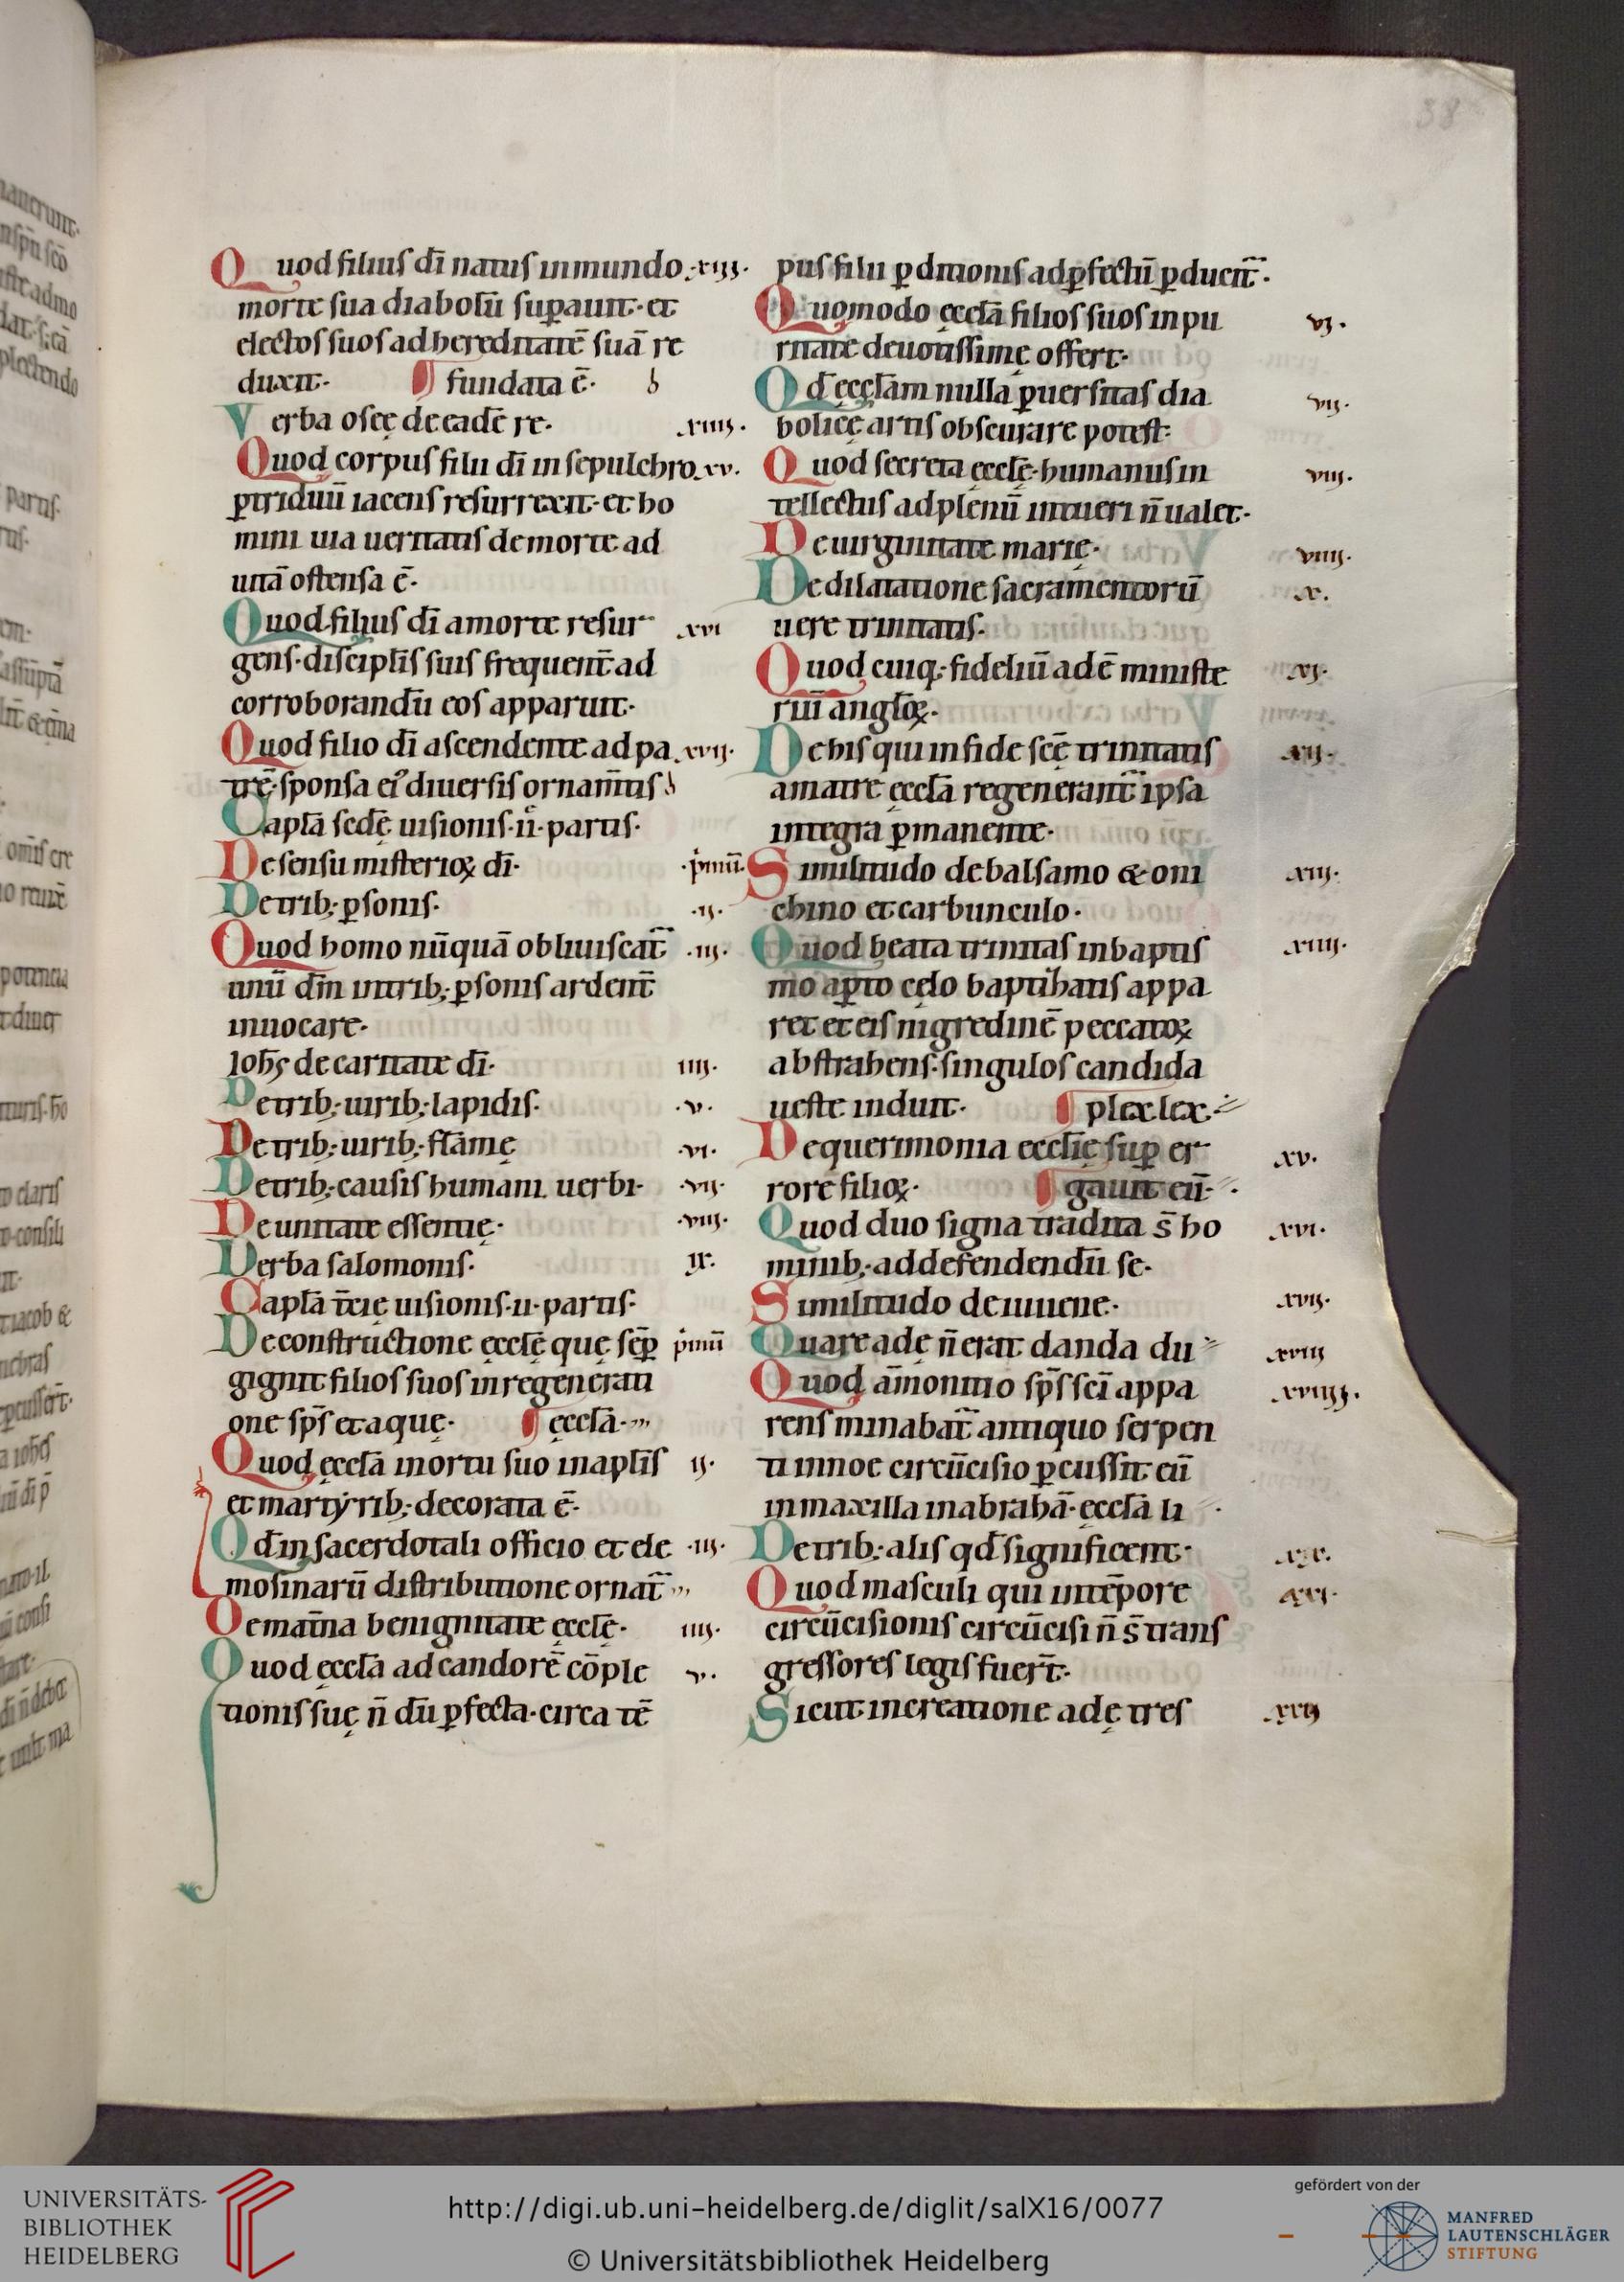 38
Quod filius dī natus in mundo .xiii.
morte sua diabolū suꝑauit · et
electos suos ad hereditatē suā re
duxit. fundata ē. b
Verba oseę de eadē re. .xiiii.
Quod corpus filii dī in sepulchro .xv.
ꝑ triduū iacens resurrexit · et ho
mini uia ueritatis de morte ad
uitā ostensa ē.
Quod filius dī a morte resur xvi
gens · disciplīs suis frequent̄ ad
corroborandū eos apparuit.
Quod filio dī ascendente ad pa .xvii.
trē · sponsa ei᾽ diuersis ornam̄tis b
Capl̄a scd̄ę uisionis · ii · partis.
De sensu misterioꝝ dī. .pͥmū.
De trib; ꝑsonis. .ii.
Quod homo nūquā obliuiscat᷑ .iii.
unū dm̄ in trib; ꝑsonis ardent̄
inuocare.
Ioh̄s de caritate dī. iiii.
De trib; uirib; lapidis. .v.
De trib; uirib; flāmę .vi.
De trib; causis humani uerbi. .vii.
De unitate essentię. .viii.
Verba salomonis. ix.
Capl̄a t̄cię uisionis · ii · partis.
De constructione ęccl̄ę quę sēꝑ pͥmū
gignit filios suos in regenerati
one sp̄s et aquę. ęccl̄a.
Quod ęccl̄a in ortu suo in apl̄is ii.
et martẏrib; decorata ē.
Qd̄ in sacerdotali officio et ele .iii.
mosinarū distributione ornat᷑
De mat̄na benignitate ęccl̄ę. iiii.
Quod ęccl̄a ad candorē cōple v.
tionis suę n̄ dū ꝑfecta · circa tē
pus filii ꝑditionis ad ꝑfectū ꝑducit᷑.
Quomodo ęccl̄a filios suos in pu vi.
ritate deuotissimę offert.
Qd̄ ęccl̄am nulla ꝑuersitas dia vii.
bolicę artis obscurare potest.
Quod secreta ęccl̄ę humanus in viii.
tellectus ad plenū intueri n̄ ualet.
De uirginitate marię. viiii.
De dilatatione sacramentorū x.
uere trinitatis.
Quod cuiq; fideliū adē ministe xi.
riū angl̄oꝝ.
De his qui in fide scē trinitatis xii.
a matre ęccl̄a regenerant᷑ ipsa
integra ꝑmanente.
Similitudo de balsamo & oni xiii.
chino et carbunculo.
Quod beata trinitas in baptis xiiii.
mo aꝑto cęlo baptizatis appa
ret et eis nigredinē peccatoꝝ
abstrahens · singulos candida
ueste induit. plex lex.
De querimonia ecclīę suꝑ er xv.
rore filioꝝ. gauit eū.
Quod duo signa tradita s̄ ho xvi.
minib; ad defendendū se.
Similitudo de iuuene. xvii.
Quare adę n̄ erat danda du xviii
Quod āmonitio sp̄s scī appa xviiii.
rens minabat᷑ antiquo serpen
ti in noe circūcisio ꝑcussit eū
in maxilla in abrahā · ęccl̄a li
De trib; alis qd̄ significent. xx.
Quod masculi qui in tēpore xxi.
circūcisionis circūcisi n̄ s̄ trans
gressores legis fuer̄t.
Sicut in creatione adę tres xxii
UNIVERSITÄTS-
BIBLIOTHEK
HEIDELBERG
http://digi.ub.uni-heidelberg.de/diglit/salX16/0077
© Universitätsbibliothek Heidelberg
gefördert von der
MANFRED
LAUTENSCHLÄGER
STIFTUNG